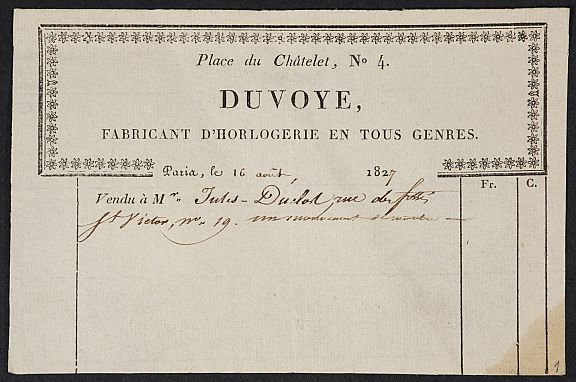 Place du Châtelet, Nº 4.
DUVOYE,
FABRICANT D'HORLOGERIE EN TOUS GENRES.
Paris, le 16 août, 1827
Fr. C.
Vendu à Mr. Jules - rue des fossés
St Victor, nº 19. un mouvement de montre —
1